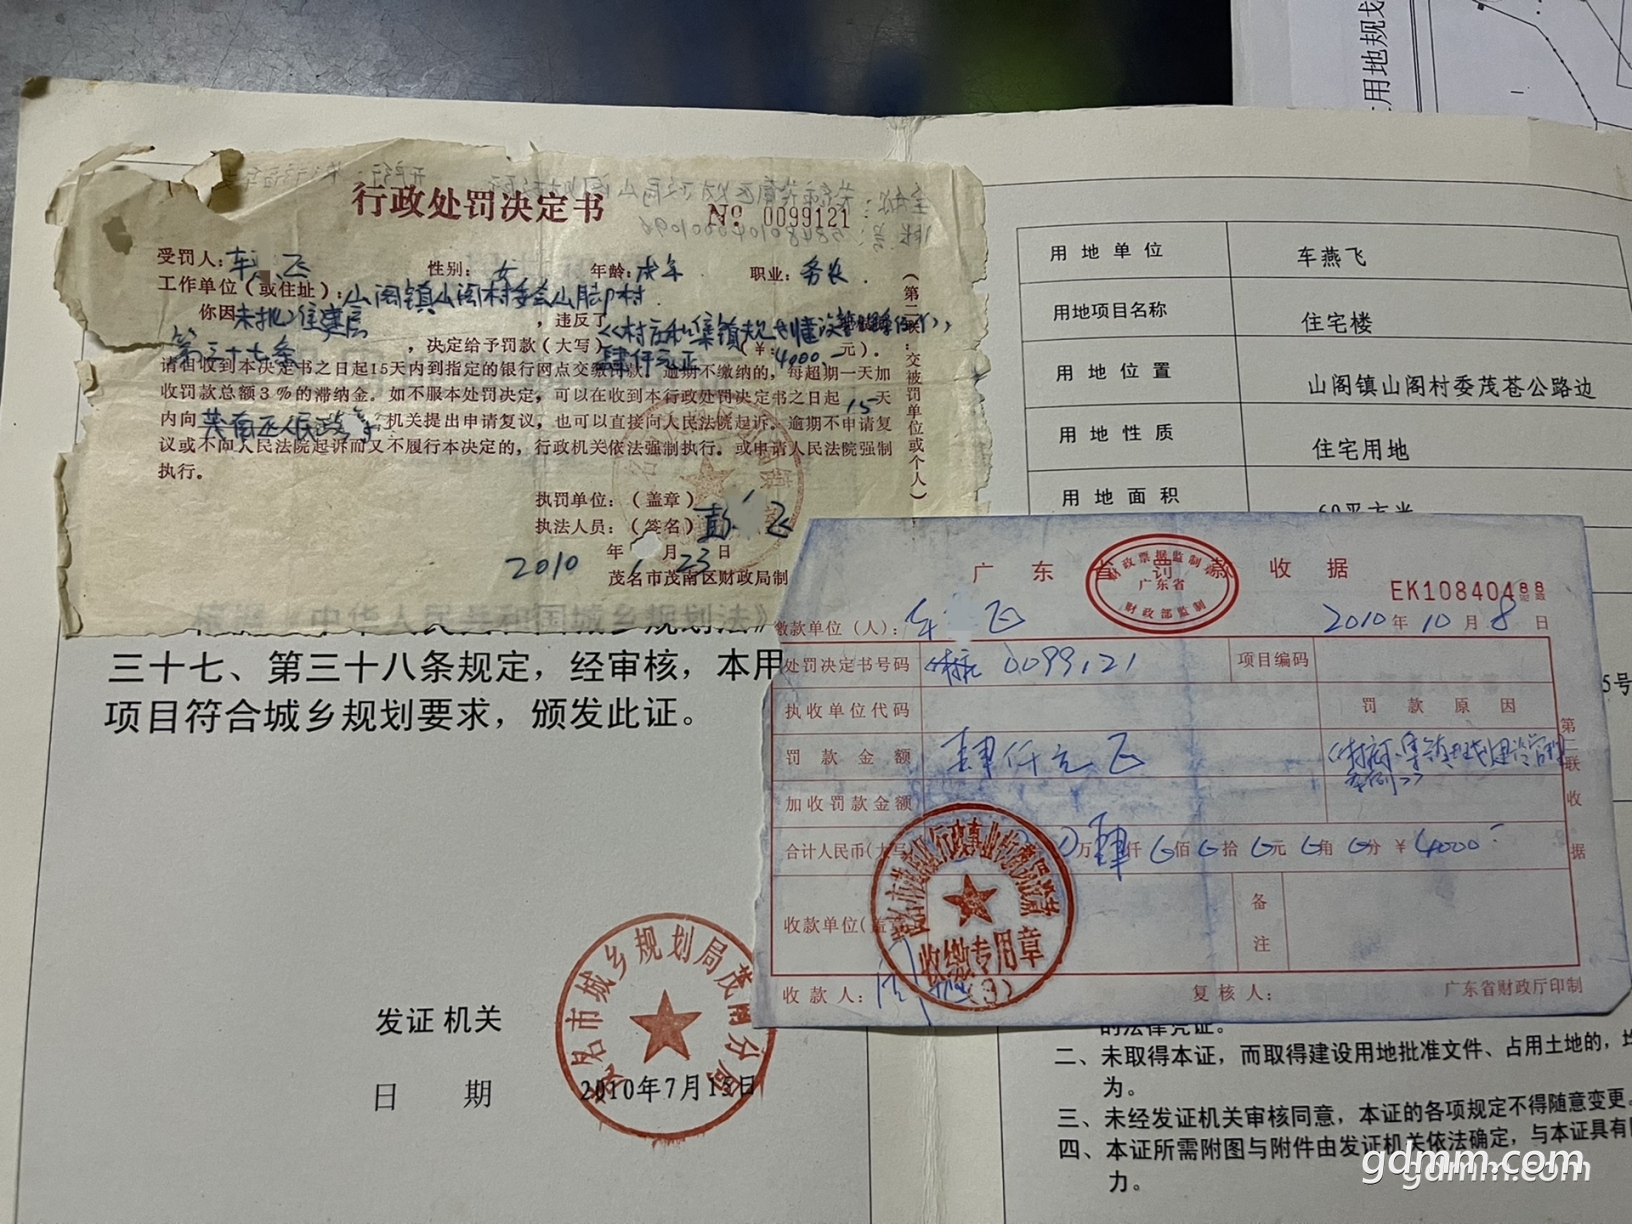 行政处罚决定书
No. 0099121
受罚人：车 飞 性别：女 年龄：成年 职业：务农
工作单位（或住址）：山阁镇山阁村委会山脚村
你因未批准建房，违反了《村庄和集镇规划建设管理条例》
第三十七条，决定给予罚款（大写）肆仟元正（￥：4000.－元）。
请在收到本决定书之日起15天内到指定的银行网点交缴罚款。逾期不缴纳的，每超期一天加
收罚款总额3％的滞纳金。如不服本处罚决定，可以在收到本行政处罚决定书之日起15天
内向茂南区人民政府机关提出申请复议，也可以直接向人民法院起诉。逾期不申请复
议或不向人民法院起诉而又不履行本决定的，行政机关依法强制执行。或申请人民法院强制
执行。
执罚单位：（盖章）
执法人员：（签名）彭 飞
2010年 月23日
茂名市茂南区财政局制
（第二联：交被罚单位或个人）
根据《中华人民共和国城乡规划法》
三十七、第三十八条规定，经审核，本用
项目符合城乡规划要求，颁发此证。
发证机关
茂名市城乡规划局茂南分局
日 期
2010年7月15日
用地规划
用地单位 车燕飞
用地项目名称 住宅楼
用地位置 山阁镇山阁村委茂苍公路边
用地性质 住宅用地
用地面积 60平方米
5号
广东省罚款收据
财政票据监制
广东省
财政部监制
EK10840488
缴款单位（人）：车 飞 2010年10月8日
处罚决定书号码 0099121 项目编码
执收单位代码 罚款原因
罚款金额 肆仟元正
加收罚款金额
合计人民币（大写 万肆仟 佰 拾 元 角 分 ￥4000－
收款单位（盖章
备注
收缴专用章
(3)
收款人： 复核人： 广东省财政厅印制
第二联 收据
的法律凭证。
二、未取得本证，而取得建设用地批准文件、占用土地的，均
为。
三、未经发证机关审核同意，本证的各项规定不得随意变更。
四、本证所需附图与附件由发证机关依法确定，与本证具有同
力。
gdmm.com
gdmm.com